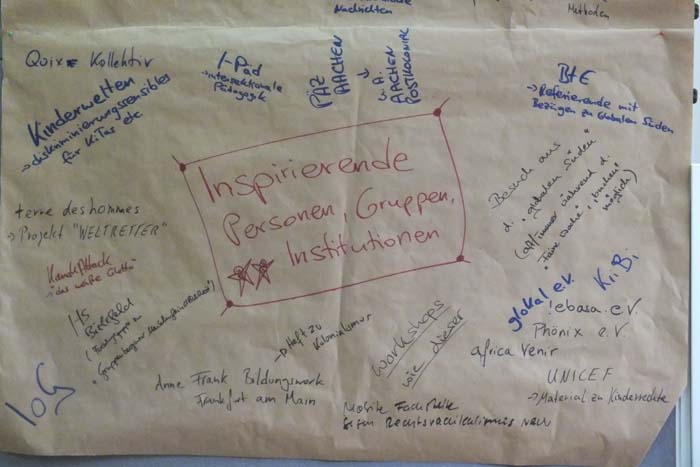 Nachrichten
Methoden
Quix Kollektiv
Kinderwelten
→ diskriminierungssensibles
für KiTas etc
I-Päd
→ intersektionale
Pädagogik
PÄZ
AACHEN
→ u.A.
AACHEN
POSTKOLONIAL
BtE
→ Referierende mit
Bezügen zu Globalen Süden
Inspirierende
Personen, Gruppen,
Institutionen
Besuch aus
d. globalen Süden
(oft/immer während d.
"Faire Woche", buchen
möglich)
terre des hommes
→ Projekt "WELTRETTER"
Kanak Attack
"das weiße Ghetto"
Hs
Bielefeld
glokal e.V.
KiBi
!ebasa e.V.
Phönix e.V.
africa Venir
UNICEF
→ Material zu Kinderrechte
→ Heft zu
Kolonialismus
Anne Frank Bildungswerk
Frankfurt am Main
Workshops
wie dieser
Mobile Fachstelle
gegen Rechtsradikalismus NRW
IoG